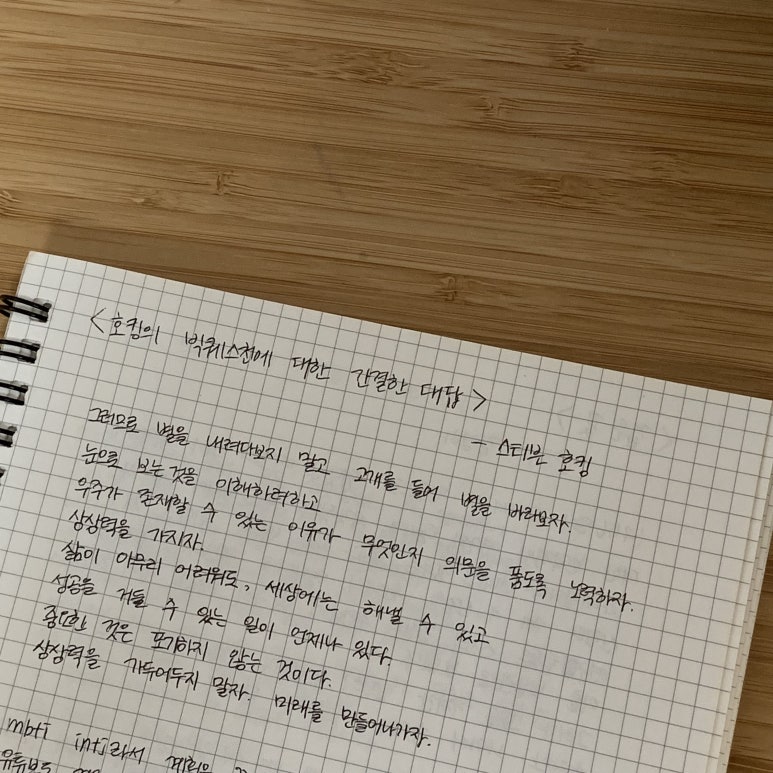 <호킹의 빅퀘스천에 대한 간결한 대답>
- 스티븐 호킹
그러므로 별을 내려다보지 말고 고개를 들어 별을 바라보자.
눈으로 보는 것을 이해하려하고
우주가 존재할 수 있는 이유가 무엇인지 의문을 품도록 노력하자.
상상력을 가지자.
삶이 아무리 어려워도, 세상에는 해낼 수 있고
성공을 거둘 수 있는 일이 언제나 있다.
중요한 것은 포기하지 않는 것이다.
상상력을 가두어두지 말자. 미래를 만들어나가자.
mbti intj라서 계획을
유튜브도